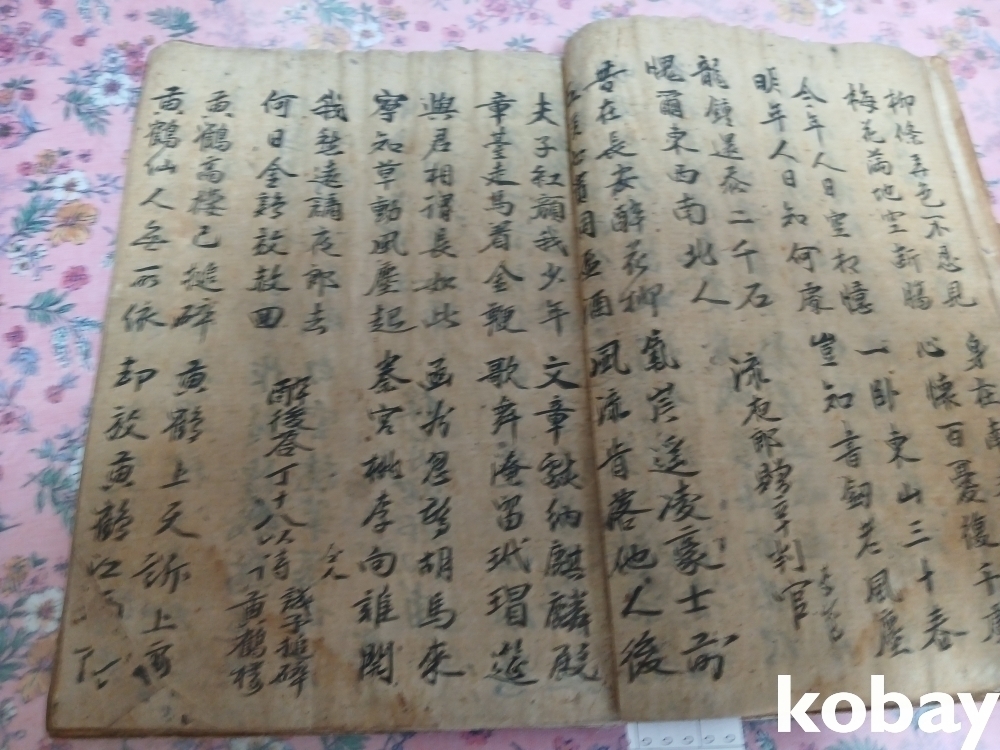 柳條弄色不忍見
梅花滿地空斷腸
身在
心懷百憂復千
今年人日空相憶
明年人日知何處
一卧東山三十春
豈知書劒老風塵
龍鍾還忝二千石
愧爾東西南北人
流夜郎贈辛判官
昔在長安醉花柳
同盃酒
氣岸遙凌豪士前
風流肯落他人後
夫子紅顔我少年
章臺走馬着金鞭
文章獻納麒麟殿
歌舞淹留玳瑁筵
與君相得長如此
寧知草動風塵起
函谷忽驚胡馬來
秦宮桃李向誰開
我愁遠謫夜郎去
何日金鷄放赦回
醉後答丁十八以詩譏予搥碎黃鶴樓
仝人
黃鶴高樓已搥碎
黃鶴仙人無所依
黃鶴上天訴上帝
却放黃鶴江
kobay